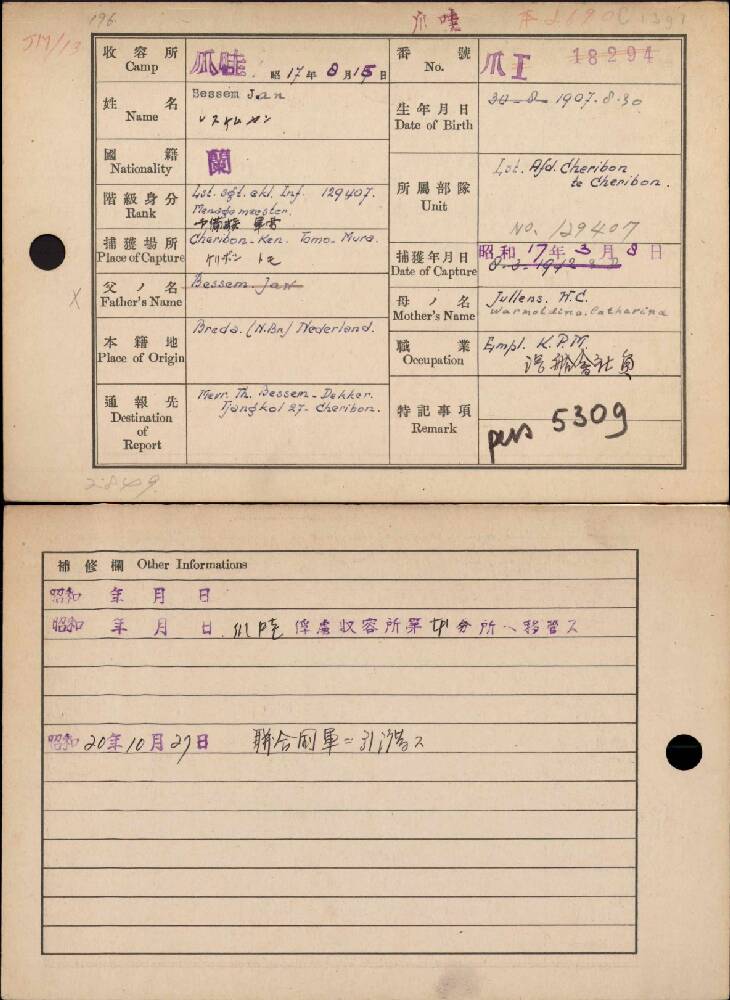 196
爪哇
5M/13
收容所
Camp
爪哇 昭17年8月15日
番號
No.
爪 I 18294
姓名
Name
Bessem Jan
生年月日
Date of Birth
30-8- 1907.8.30
國籍
Nationality
蘭
階級身分
Rank
Lst. sgt. ekl. Inf. 129407.
Menagemeester.
所屬部隊
Unit
Lst. Afd. Cheribon
te Cheribon.
No. 129407
捕獲場所
Place of Capture
Cheribon-Ken. Tomo-Mura.
捕獲年月日
Date of Capture
昭和17年3月8日
8-3-1942
父ノ名
Father's Name
Bessem. Jan
母ノ名
Mother's Name
Jullens. W.C.
Warmoldina. Catharina
本籍地
Place of Origin
Breda. (N.Br.) Nederland.
職業
Occupation
Empl. K.P.M.
通報先
Destination
of
Report
Mevr. Th. Bessem-Dekker.
Tjangkol 27- Cheribon.
特記事項
Remark
pers 5309
2849
補修欄 Other Informations
昭和 年 月 日
昭和 年 月 日 爪哇俘虜収容所第 分所ヘ移管ス
昭和20年10月27日 聯合国軍ニ引渡ス